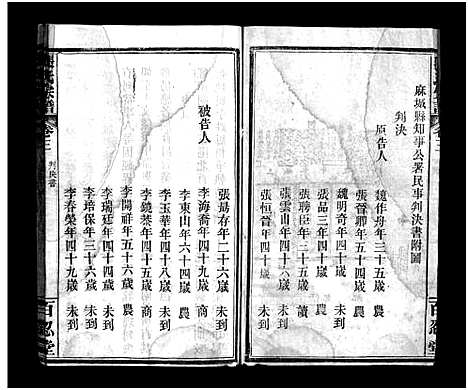 麻城縣知事公署民事判決書附圖
判決
原告人
魏作舟年三十五歲 農
張晉卿年五十五歲
魏明奇年四十歲
張品三年四十歲
張聘臣年三十歲 讀
張雲山年四十六歲 未到
張恒首年四十歲
張易存年二十六歲 未到
被告人
李海喬年四十九歲 商
李東山年六十四歲 農
李玉華年四十八歲 農
李鏡棻年四十五歲 商
李開祥年五十六歲 農
李瑞廷年四十四歲 未到
李培保年三十六歲 未到
李春榮年四十九歲 未到
卷三
判決書
百忍堂